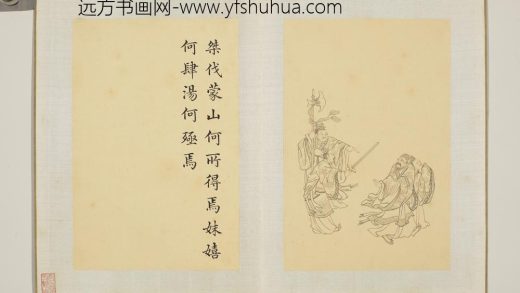 远方书画网-www.yfshuhua.com
桀伐蒙山何所得焉妺嬉
何肆湯何殛焉